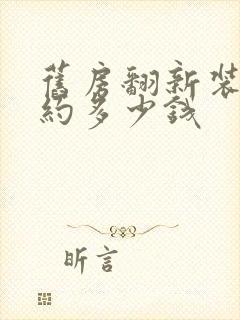 舊房翻新裝
約多少錢
昕言